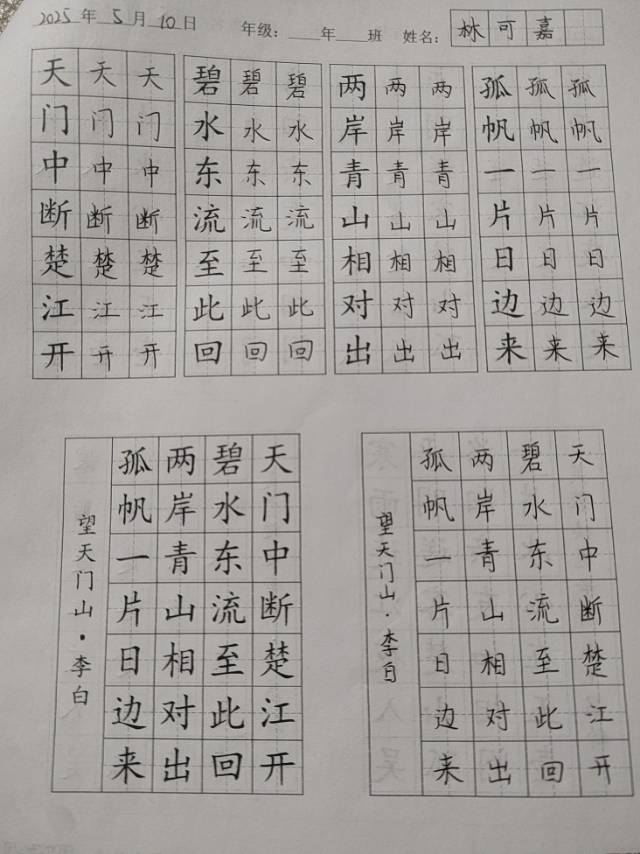 2025年5月10日 年级：____年____班 姓名：林可嘉
天天天
门门门
中中中
断断断
楚楚楚
江江江
开开开
碧碧碧
水水水
东东东
流流流
至至至
此此此
回回回
两两两
岸岸岸
青青青
山山山
相相相
对对对
出出出
孤孤孤
帆帆帆
一一一
片片片
日日日
边边边
来来来
天门中断楚江开
碧水东流至此回
两岸青山相对出
孤帆一片日边来
望天门山·李白
天门中断楚江开
碧水东流至此回
两岸青山相对出
孤帆一片日边来
望天门山·李白